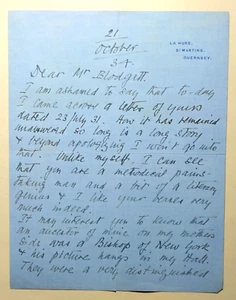 21
October
34
LA HURE,
ST MARTINS,
GUERNSEY.
Dear Mr Blodgett
I am ashamed to say that to-day
I came across a letter of yours
dated 23/July 31. How it has remained
unanswered so long is a long story
& beyond apologizing I won't go into
that. Unlike myself, I can see
that you are a methodical pains-
taking man and a bit of a literary
genius & I like your verses very
much indeed.
It may interest you to know that
an ancestor of mine on my mothers
side was a Bishop of New York
& his picture hangs in my Hall.
They were a very distinguished